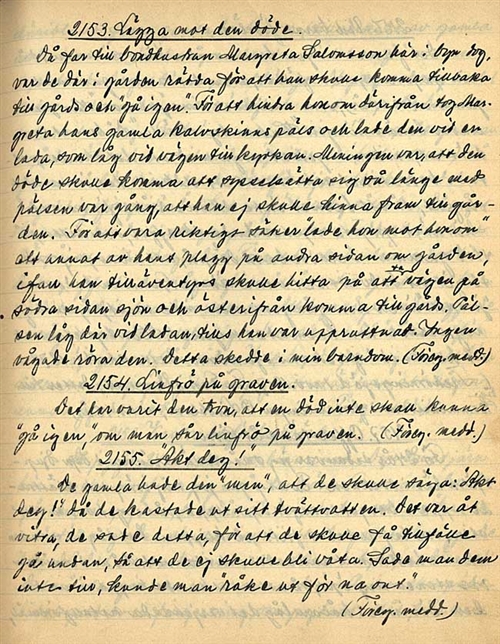 2153. Lägga mot den döde.
Då far till bondhustrun Margreta Salomsson här i byn dog,
var de där i gården rädda för att han skulle komma tillbaka
till gårds och "gå igen". För att hindra honom därifrån tog Mar-
greta hans gamla kalvskinnspäls och lade den vid en
lada, som låg vid vägen till kyrkan. Meningen var, att den
döde skulle komma att sysselsätta sig så länge med
pälsen var gång, att han ej skulle hinna fram till går-
den. För att vara riktigt säker "lade hon mot honom"
ett annat av hans plagg på andra sidan om gården,
ifall han tilläventyrs skulle hitta på att ta vägen på
södra sidan sjön och österifrån komma till gårds. Päl-
sen låg där vid ladan, tills han var uppruttnad. Ingen
vågade röra den. Detta skedde i min barndom. (Föreg. medd.)
2154. Linfrö på graven.
Det har varit den tron, att en död inte skall kunna
"gå igen" om man sår linfrö på graven. (Föreg. medd.)
2155. "Akt deg!"
De gamla hade den "min", att de skulle säga: "Akt
deg!" då de kastade ut sitt tvättvatten. Det var åt
vitra, de sade detta, för att de skulle få tillfälle
gå undan, så att de ej skulle bli våta. Sade man dem
inte till, kunde man "råke ut för na ont."
(Föreg. medd.)